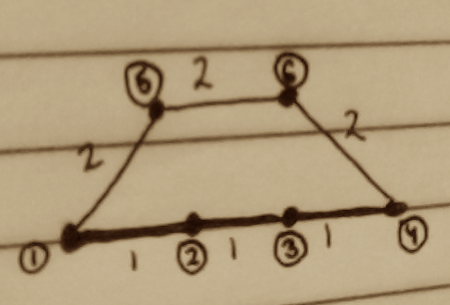 ⑤ 2 ⑥
2 2
① 1 ② 1 ③ 1 ④